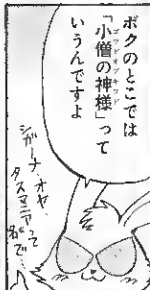 ボクのとこでは
「小僧の神様」って
ゴッドオブキッド
いうんですよ
シガーナ・オヤ・
タスマニアって
名で